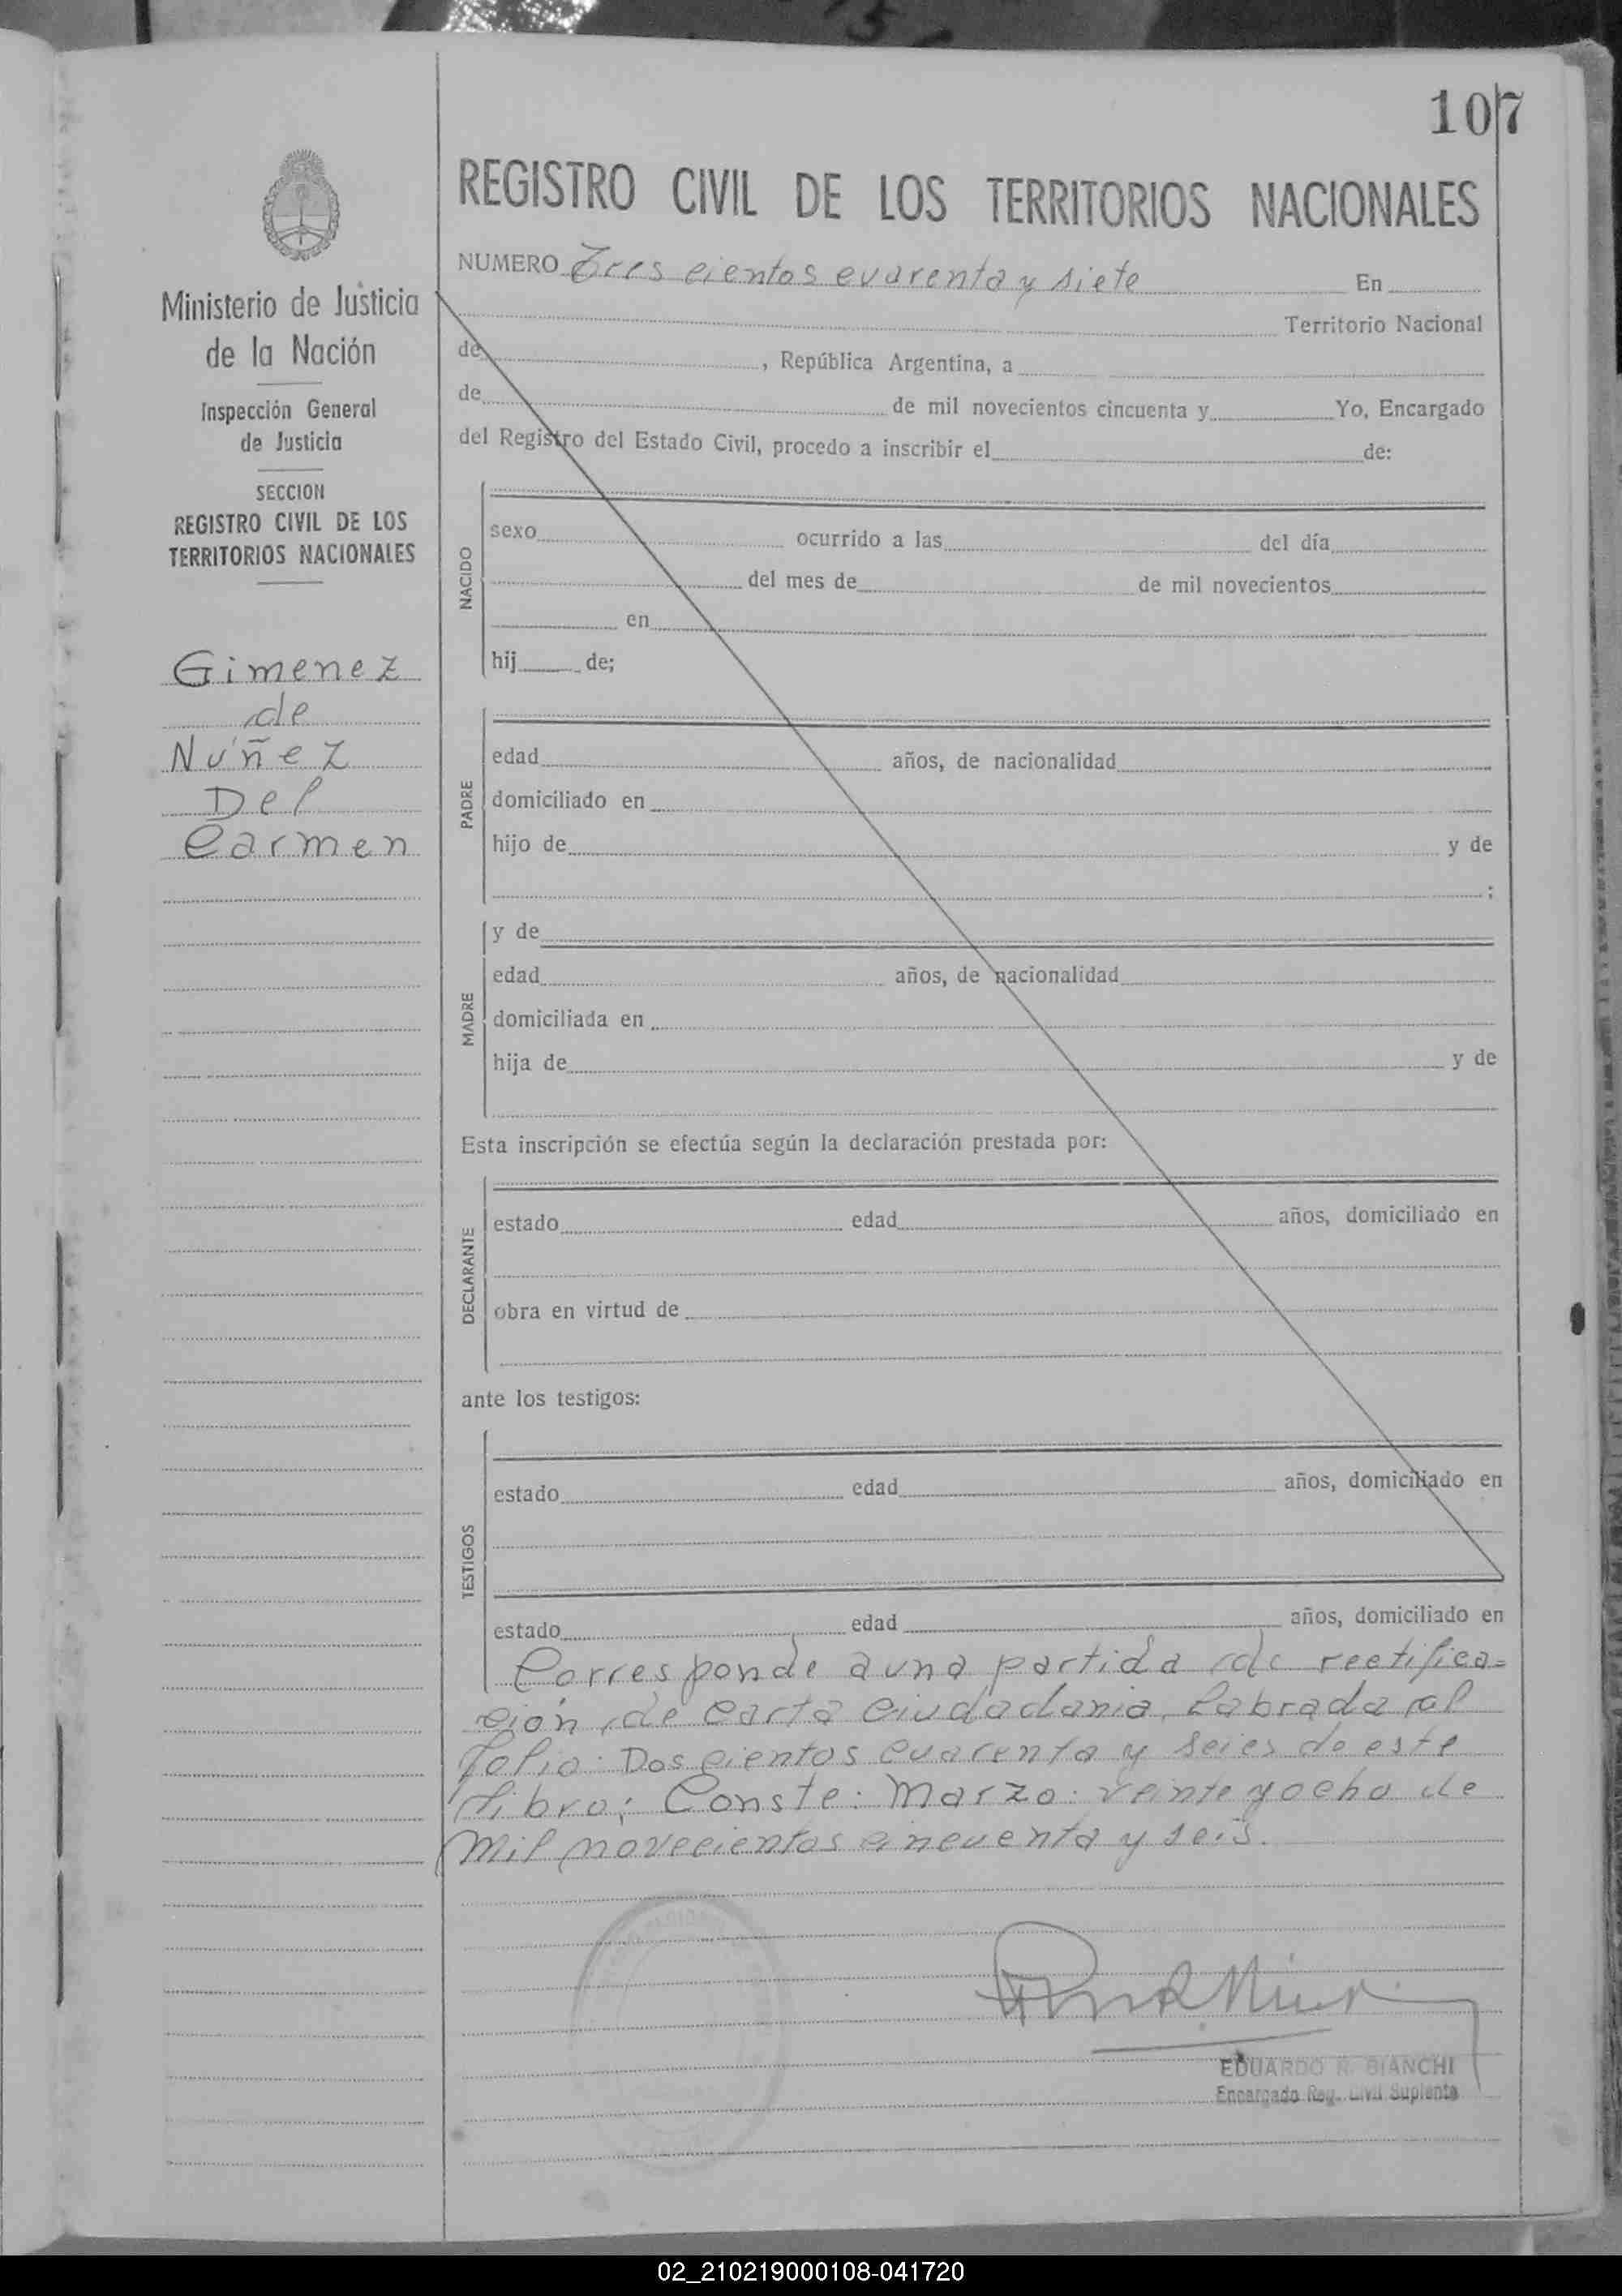 107
REGISTRO CIVIL DE LOS TERRITORIOS NACIONALES
NUMERO Tres cientos cuarenta y siete En
Territorio Nacional
de , República Argentina, a
de de mil novecientos cincuenta y Yo, Encargado
del Registro del Estado Civil, procedo a inscribir el de:
Ministerio de Justicia
de la Nación
Inspección General
de Justicia
SECCION
REGISTRO CIVIL DE LOS
TERRITORIOS NACIONALES
Gimenez
de
Núñez
Del
Carmen
NACIDO
sexo ocurrido a las del día
del mes de de mil novecientos
en
hij de;
PADRE
edad años, de nacionalidad
domiciliado en
hijo de y de
;
MADRE
y de
edad años, de nacionalidad
domiciliada en
hija de y de
Esta inscripción se efectúa según la declaración prestada por:
DECLARANTE
estado edad años, domiciliado en
obra en virtud de
ante los testigos:
TESTIGOS
estado edad años, domiciliado en
estado edad años, domiciliado en
Corresponde a una partida de rectifica=
ción de Carta Ciudadania, Labrada al
folio: Dos cientos cuarenta y seies de este
libro; Conste: Marzo: veinte y ocho de
mil novecientos cincuenta y seis.
EDUARDO R. BIANCHI
Encargado Reg. Civil Suplente
02_210219000108-041720